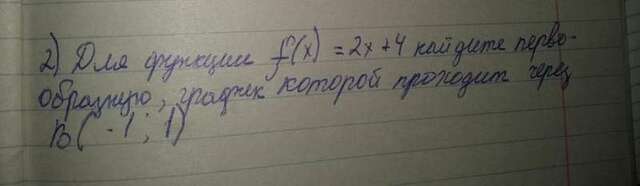 2) Для функции f(x) = 2x+4 найдите перво-
образную, график которой проходит через
В(-1; 1)